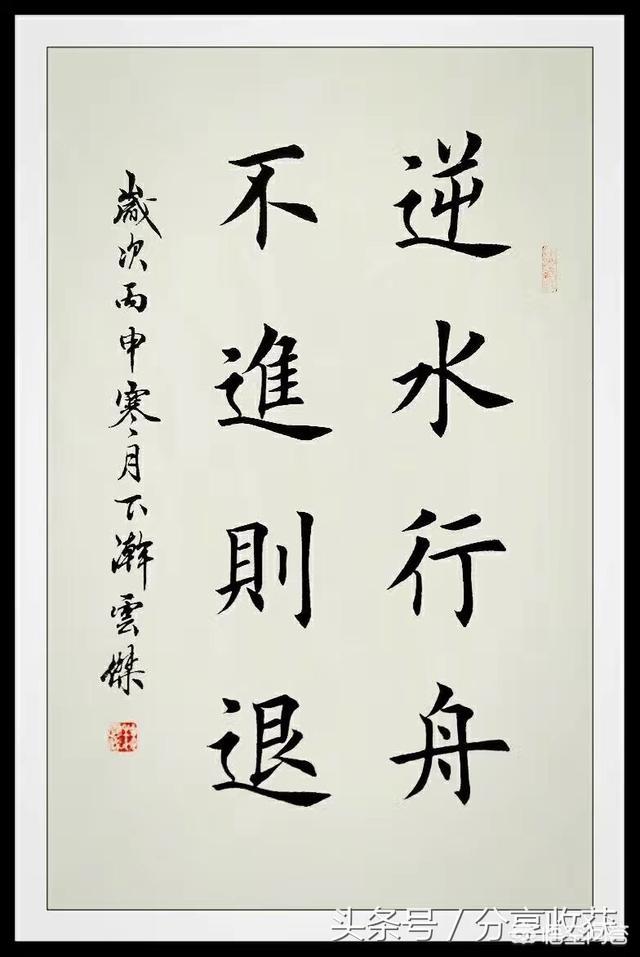 逆水行舟
不進則退
歲次丙申寒月下瀚雲傑
头条号／分享收获